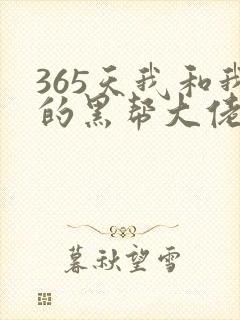 365天我和我
的黑帮大佬
暮秋望雪